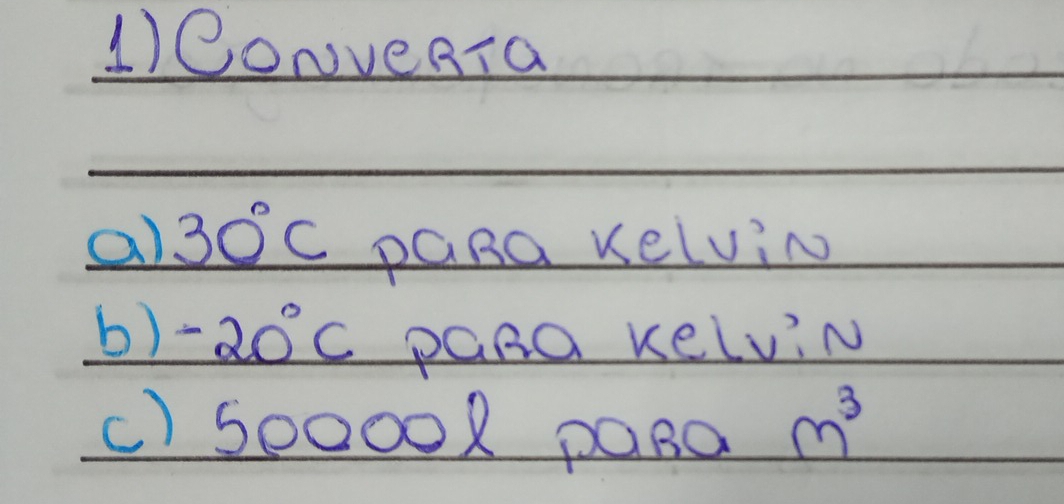 1) Converta
a) 30°C para Kelvin
b) -20°C para Kelvin
c) 50000l para m³